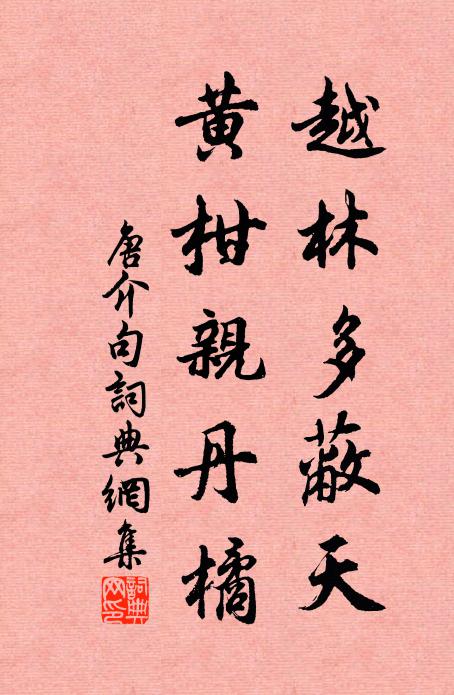 越林多蔽天
黄柑親丹橘
唐介句詞典網集
詞典網印